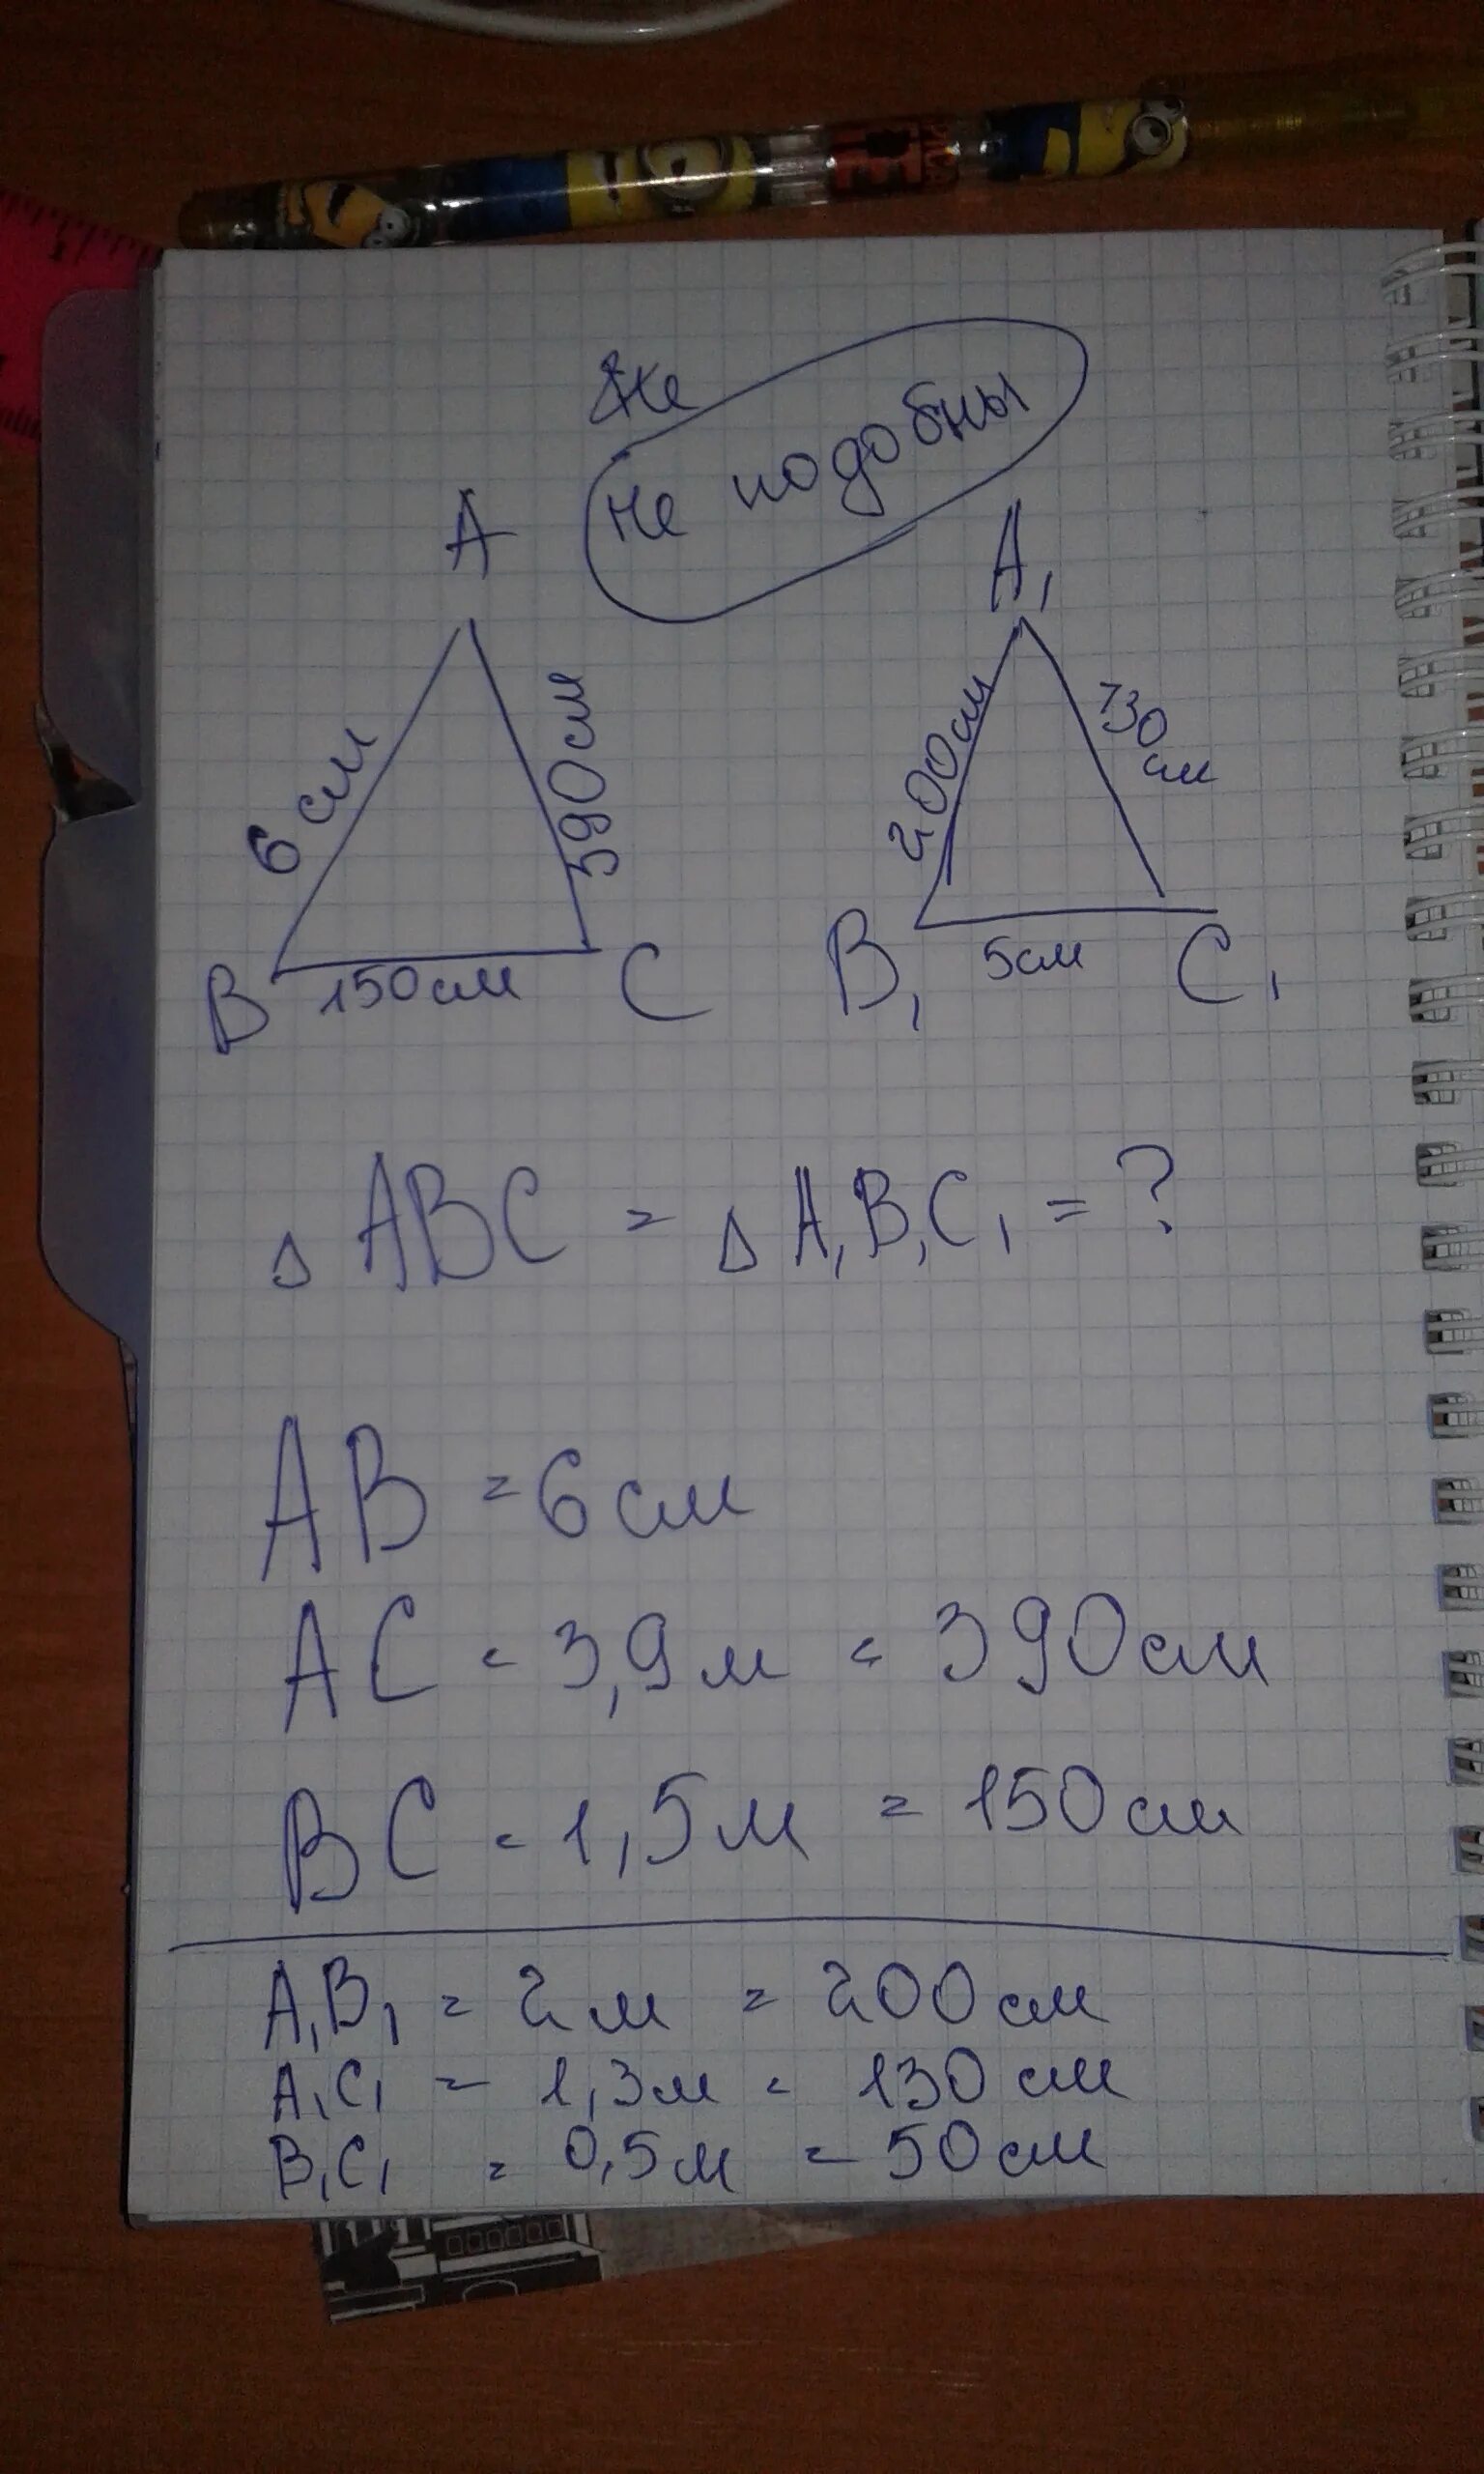 не
не подобны
A
A₁
6 см
390 см
200 см
130 см
B
150 см
C
B₁
5 см
C₁
△ ABC = △ A₁B₁C₁ = ?
AB = 6 см
AC = 3,9 м = 390 см
BC = 1,5 м = 150 см
A₁B₁ = 2 м = 200 см
A₁C₁ = 1,3 м = 130 см
B₁C₁ = 0,5 м = 50 см